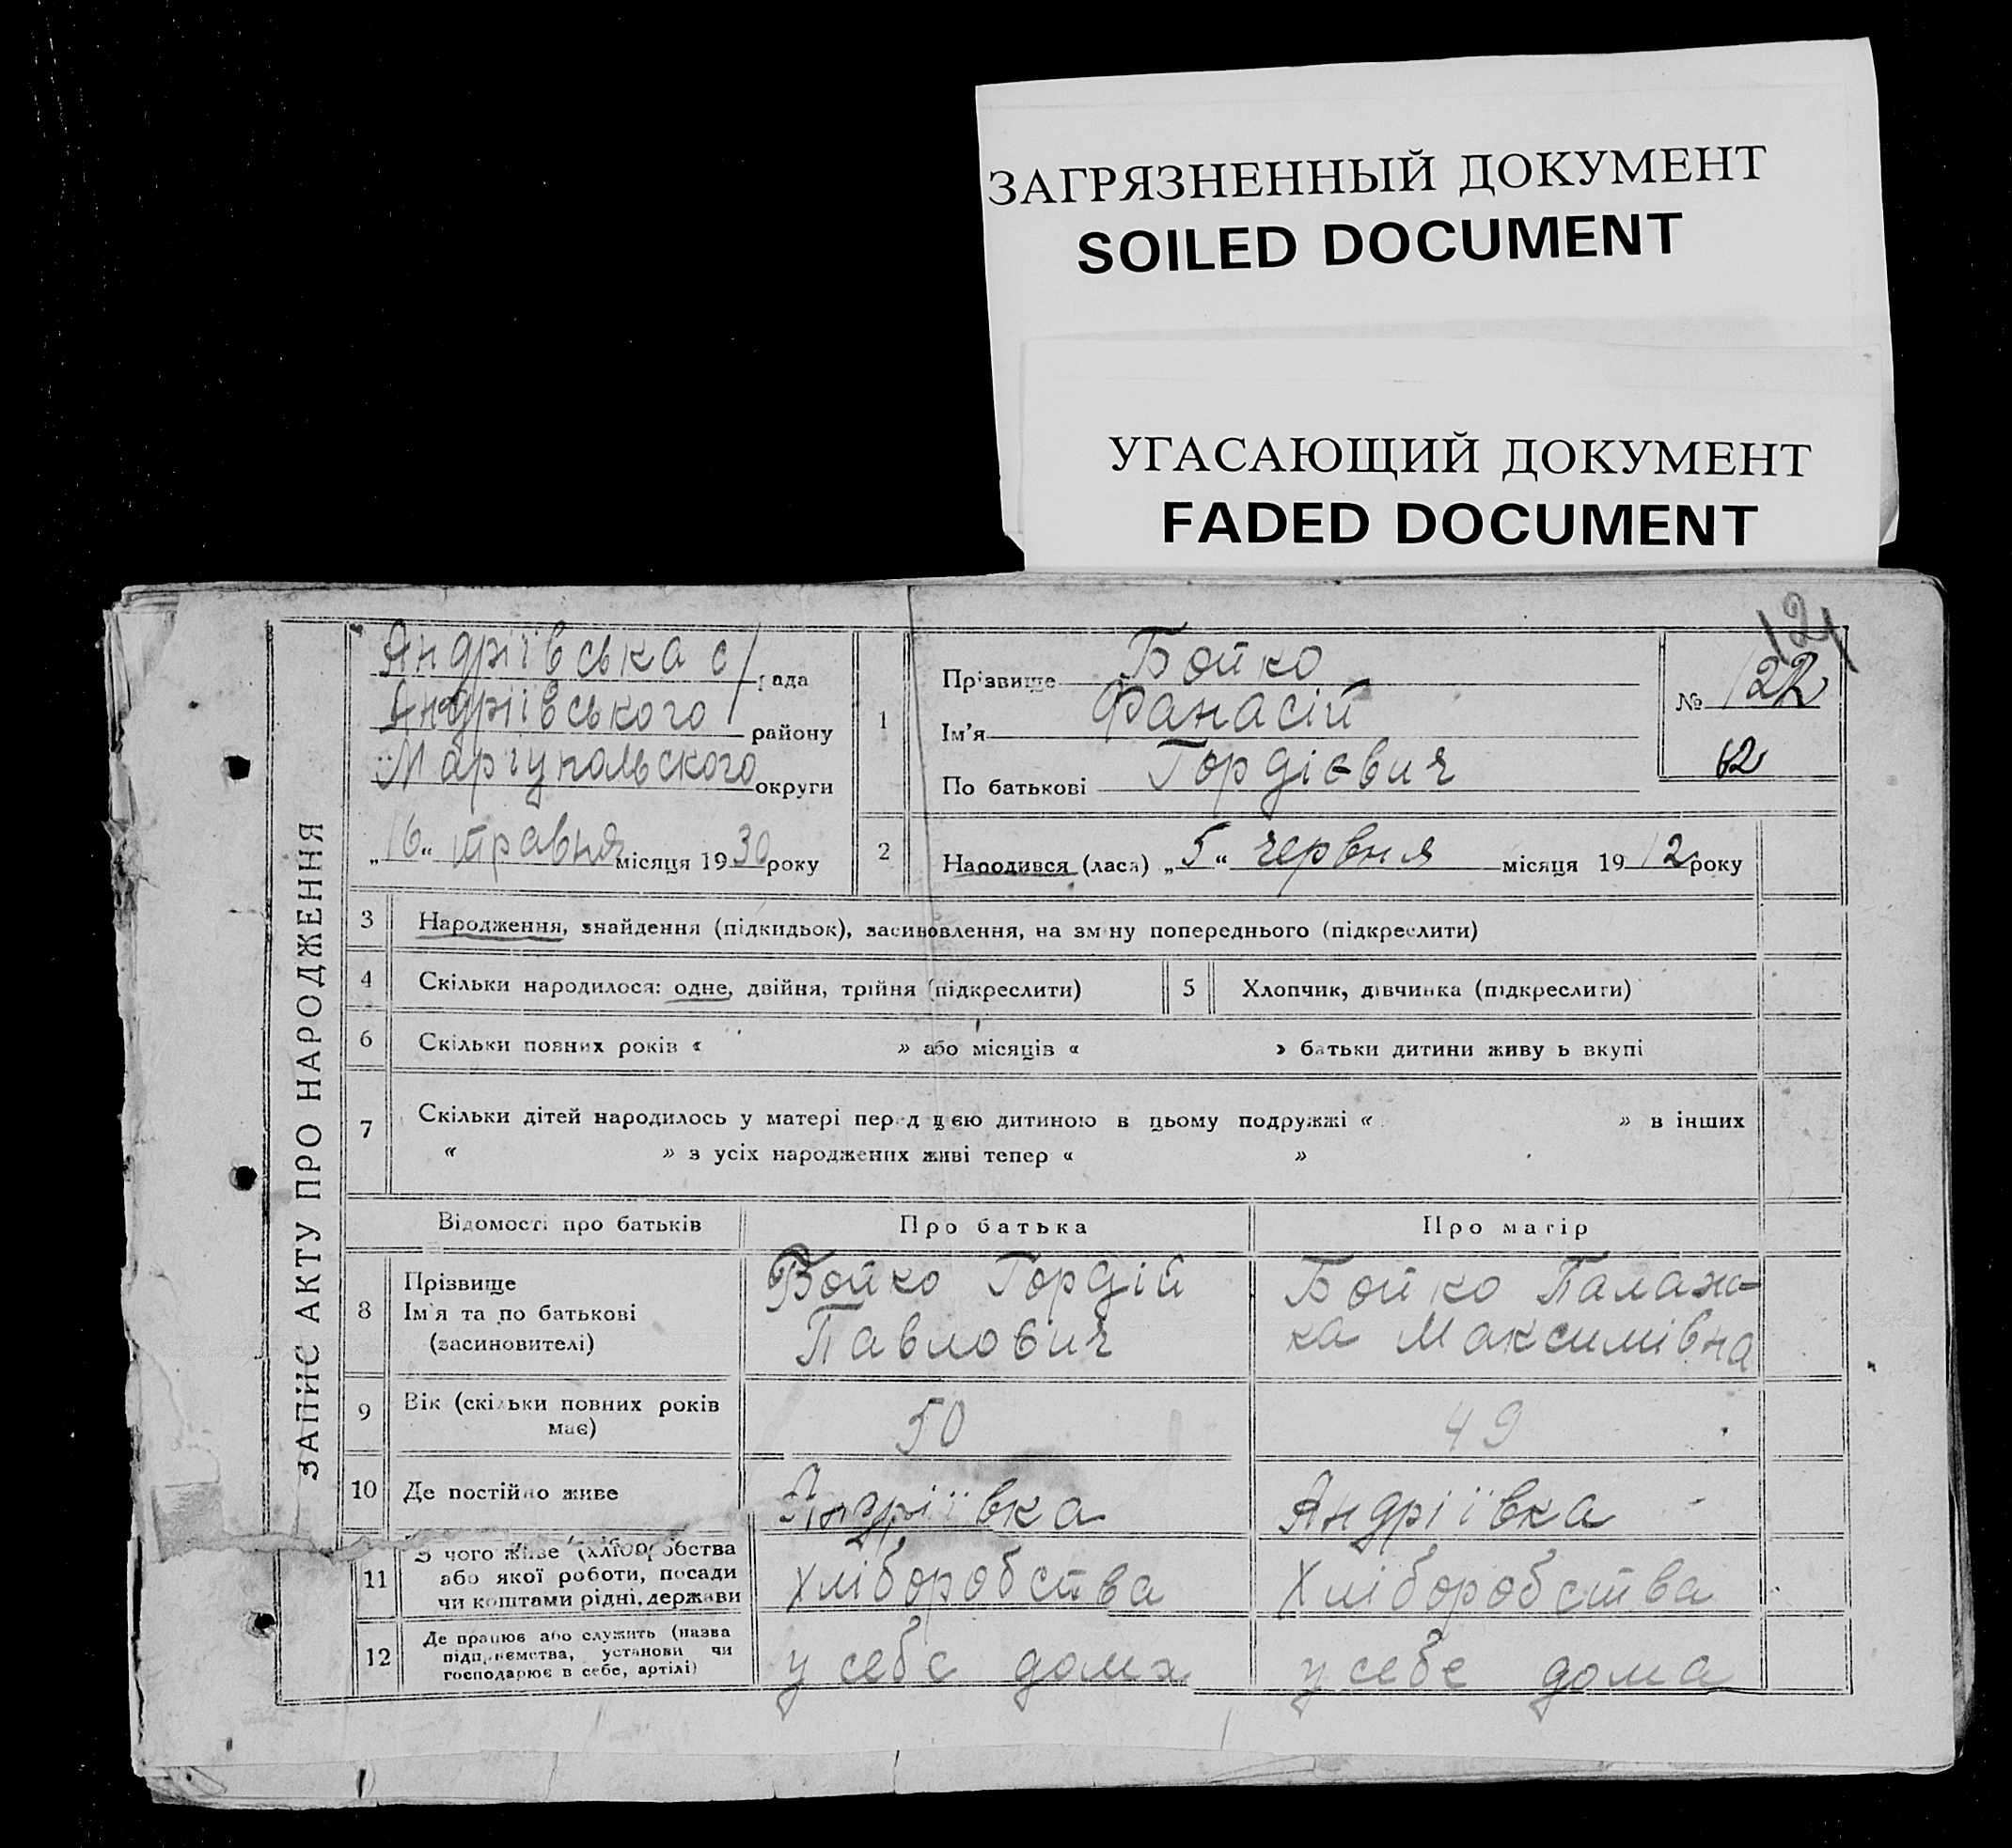 ЗАГРЯЗНЕННЫЙ ДОКУМЕНТ
SOILED DOCUMENT
УГАСАЮЩИЙ ДОКУМЕНТ
FADED DOCUMENT
ЗАПИС АКТУ ПРО НАРОДЖЕННЯ
Андріївська с/рада
Андріївського району
Маріупальского округи
„16“ травня місяця 1930 року
121
№ 122
62
1
Прізвище Бойко
Ім'я Фанасій
По батькові Гордієвич
2 Народився (лася) „5“ червня місяця 1912 року
3 Народження, знайдення (підкидьок), засиновлення, на зміну попереднього (підкреслити)
4 Скільки народилося: одне, двійня, трійня (підкреслити) 5 Хлопчик, дівчинка (підкреслити)
6 Скільки повних років « » або місяців « » батьки дитини живуть вкупі
7 Скільки дітей народилось у матері перед цією дитиною в цьому подружжі « » в інших
« » з усіх народжених живі тепер « »
Відомості про батьків Про батька Про матір
8 Прізвище Ім'я та по батькові (засиновителі)
Бойко Гордій
Павлович
Бойко Палаж-
ка Максимівна
9 Вік (скільки повних років має) 50 49
10 Де постійно живе Андріївка Андріївка
11 З чого живе (хліборобства
або якої роботи, посади
чи коштами рідні, держави
Хліборобства Хліборобства
12 Де працює або служить (назва
підприємства, установи чи
господарює в себе, артілі)
у себе дома у себе дома